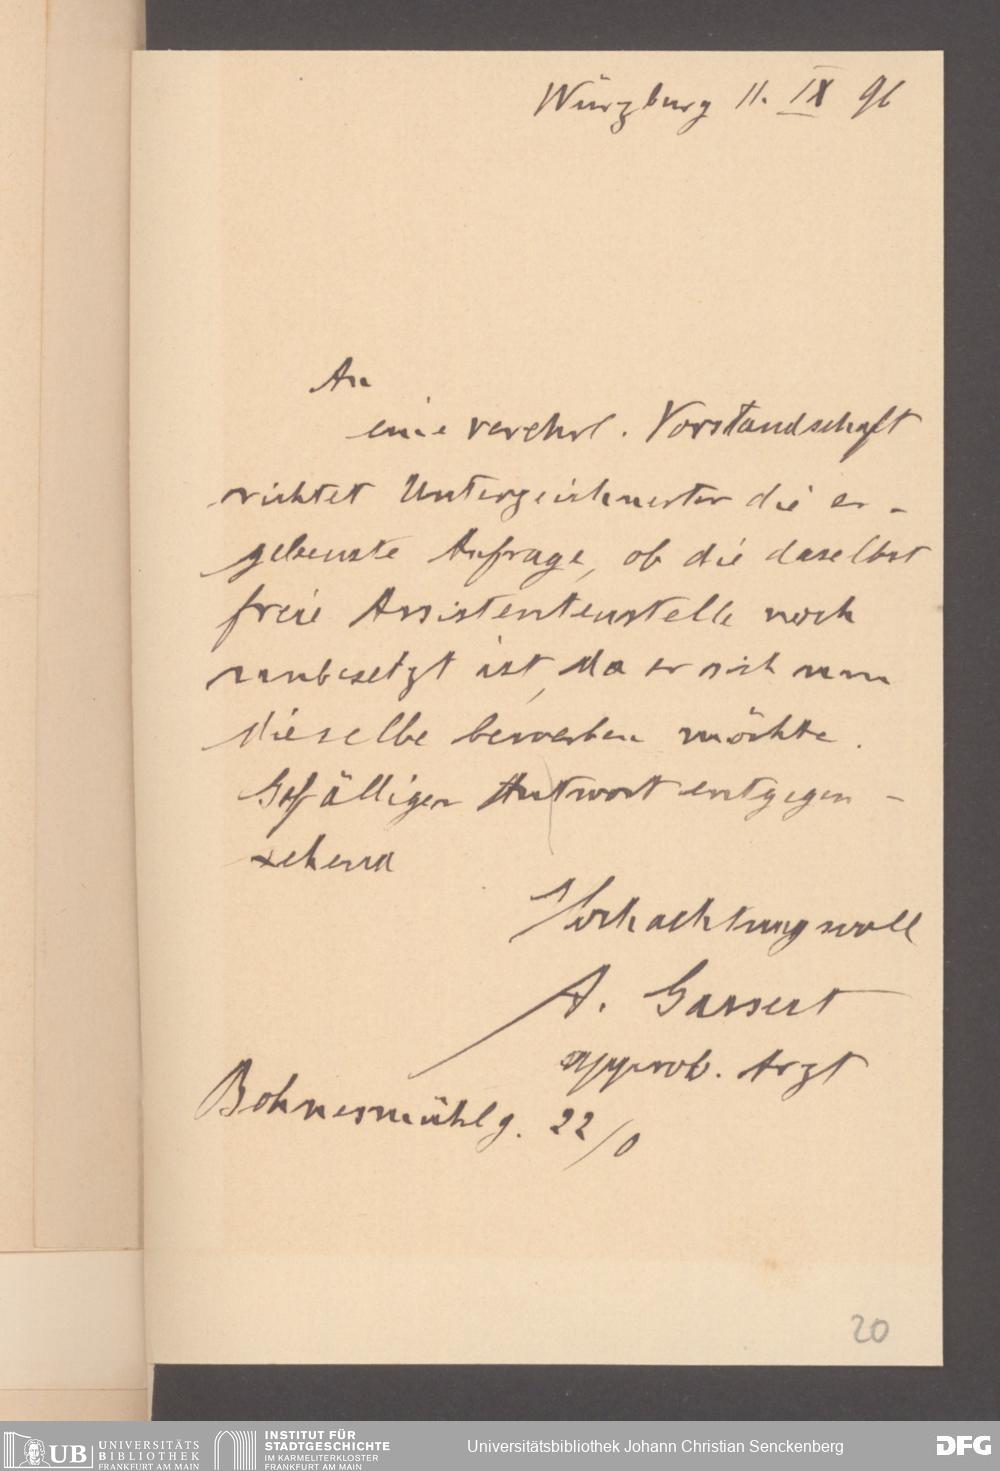 Würzburg 11. IX 96
An
eine verehrl. Vorstandschaft
richtet Unterzeichneter die er-
gebenste Anfrage, ob die daselbst
freie Assistentenstelle noch
unbesetzt ist, da er sich um
dieselbe bewerben möchte.
Gefälliger Antwort entgegen-
sehend
Hochachtungsvoll
A. Gassert
approb. Arzt
Bohnesmühlg. 22/0
20
UB UNIVERSITÄTS
BIBLIOTHEK
FRANKFURT AM MAIN
INSTITUT FÜR
STADTGESCHICHTE
IM KARMELITERKLOSTER
FRANKFURT AM MAIN
Universitätsbibliothek Johann Christian Senckenberg
DFG